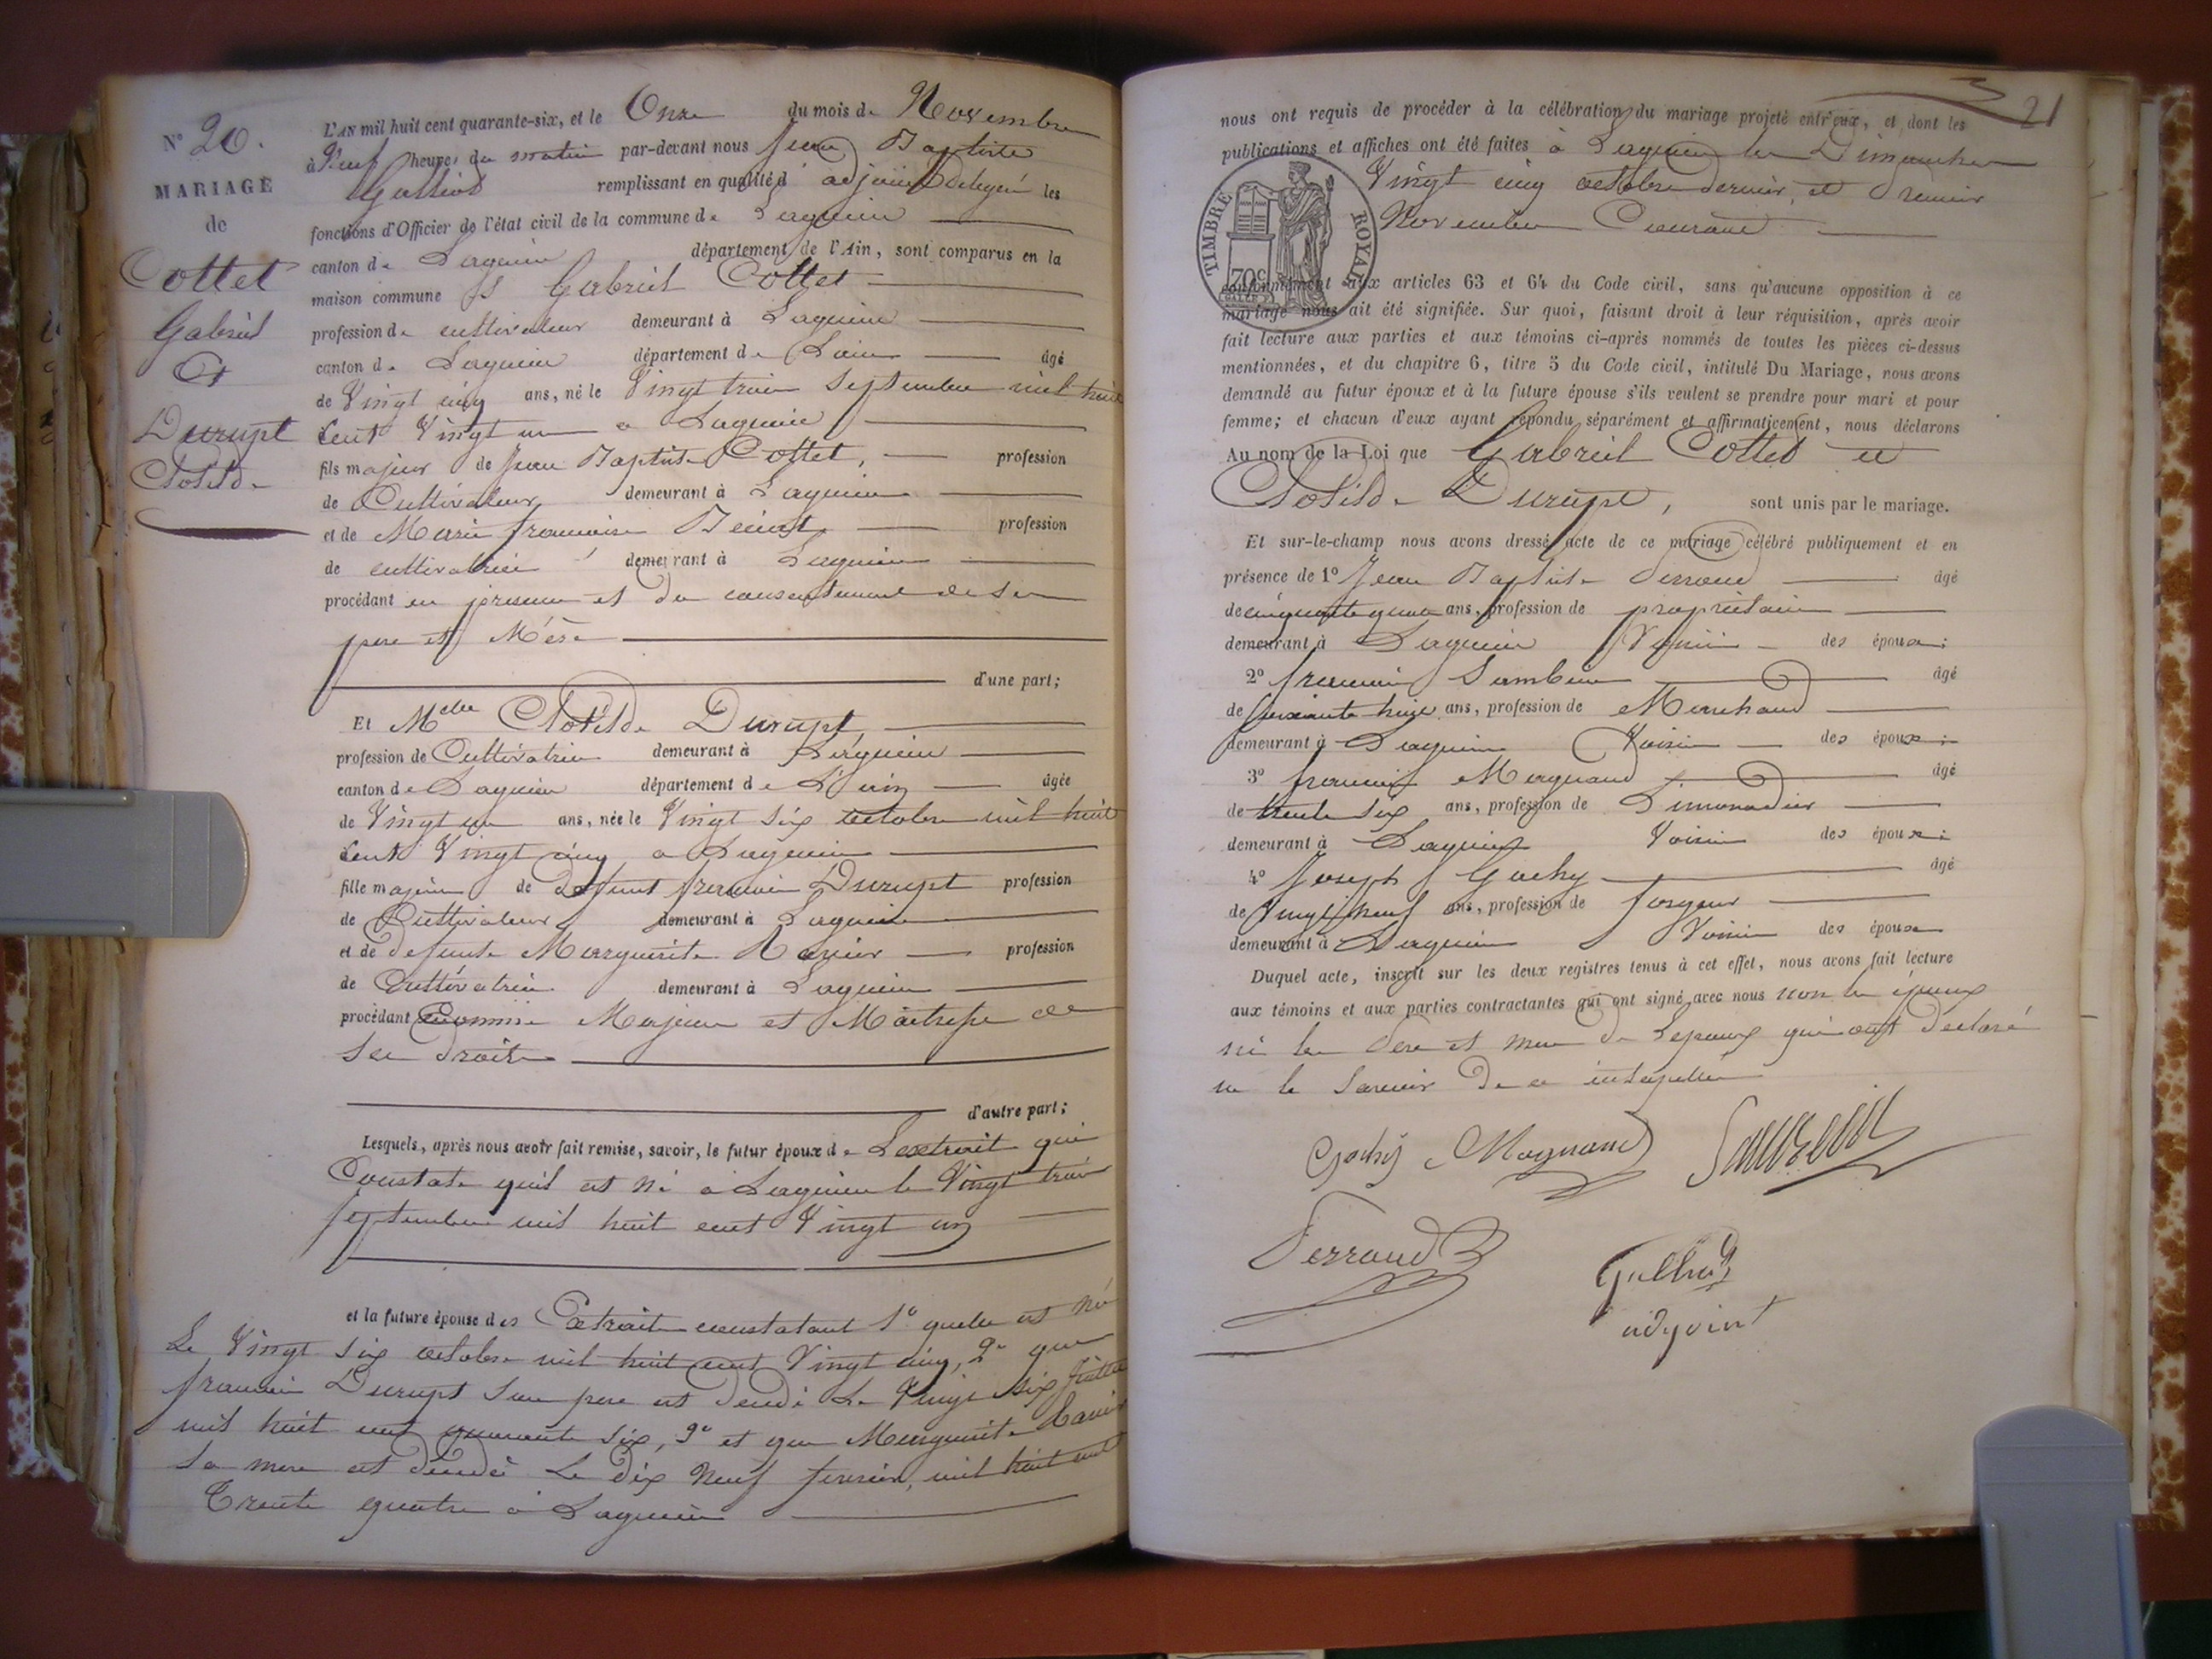 N° 20.
MARIAGE
de
Cottet
Gabriel
Et
Durupt
Clotilde
L'AN mil huit cent quarante-six, et le Onze du mois de Novembre
à Neuf heures du matin par-devant nous Jean Baptiste
remplissant en qualité d'adjoint délégué les
fonctions d'Officier de l'état civil de la commune de Lagnieu
canton de Lagnieu département de l'Ain, sont comparus en la
maison commune Sr Gabriel Cottet
profession de cultivateur demeurant à Lagnieu
canton de Lagnieu département de Lain âgé
de Vingt cinq ans, né le Vingt trois Septembre mil huit
Cent Vingt un a Lagnieu
fils majeur de Jean Baptiste Cottet, profession
de Cultivateur demeurant à Lagnieu
et de Marie francoise profession
de cultivatrice demeurant à Lagnieu
procédant en presence et du consentement de ses
pere et Mère
d'une part;
Et Melle Clotilde Durupt,
profession de Cultivatrice demeurant à Lagnieu
canton de Lagnieu département de L'ain âgée
de Vingt un ans, née le Vingt Six octobre mil huit
Cent Vingt cinq a Lagnieu
fille majeure de defunt francois Durupt profession
de Cultivateur demeurant à Lagnieu
et de defunte Marguerite Ranier profession
de Cultivatrice demeurant à Lagnieu
procédant Comme Majeure et Maitresse de
Ses droits
d'autre part;
Lesquels, après nous avoir fait remise, savoir, le futur époux de Lextrait qui
Constate quil est né a Lagnieu le Vingt trois
septembre mil huit cent Vingt un
et la future épouse des Extraits constatant 1° quelle est née
Le Vingt Six octobre mil huit cent Vingt cinq, 2° que
francois Durupt Son pere est décédé Le Vingt Six
mil huit cent quarante Six, 3° et que Marguerite Ranier
Sa mere est décédée Le dix Neuf fevrier, mil huit cent
Trente quatre a Lagnieu
21
nous ont requis de procéder à la célébration du mariage projeté entr'eux, et dont les
publications et affiches ont été faites à Lagnieu les Dimanches
Vingt cinq octobre dernier, et Premier
Novembre Courant
TIMBRE ROYAL
70c
conformément aux articles 63 et 64 du Code civil, sans qu'aucune opposition à ce
mariage nous ait été signifiée. Sur quoi, faisant droit à leur réquisition, après avoir
fait lecture aux parties et aux témoins ci-après nommés de toutes les pièces ci-dessus
mentionnées, et du chapitre 6, titre 5 du Code civil, intitulé Du Mariage, nous avons
demandé au futur époux et à la future épouse s'ils veulent se prendre pour mari et pour
femme; et chacun d'eux ayant répondu séparément et affirmativement, nous déclarons
Au nom de la Loi que Gabriel Cottet et
Clotilde Durupt, sont unis par le mariage.
Et sur-le-champ nous avons dressé acte de ce mariage célébré publiquement et en
présence de 1° Jean Baptiste Perraud âgé
de ans, profession de propriétaire
demeurant à Lagnieu Voisin des époux;
2° francois âgé
de ans, profession de Marchand
demeurant à Lagnieu Voisin des époux;
3° francois Magnand âgé
de trente six ans, profession de Limonadier
demeurant à Lagnieu Voisin des époux;
4° Joseph Gachy âgé
de Vingt neuf ans, profession de forgeur
demeurant à Lagnieu Voisin des époux
Duquel acte, inscrit sur les deux registres tenus à cet effet, nous avons fait lecture
aux témoins et aux parties contractantes qui ont signé avec nous non les époux
ni les Pere et mere de Lepoux qui ont déclaré
ne le Savoir de ce
Gachy Magnand
Perraud
adjoint